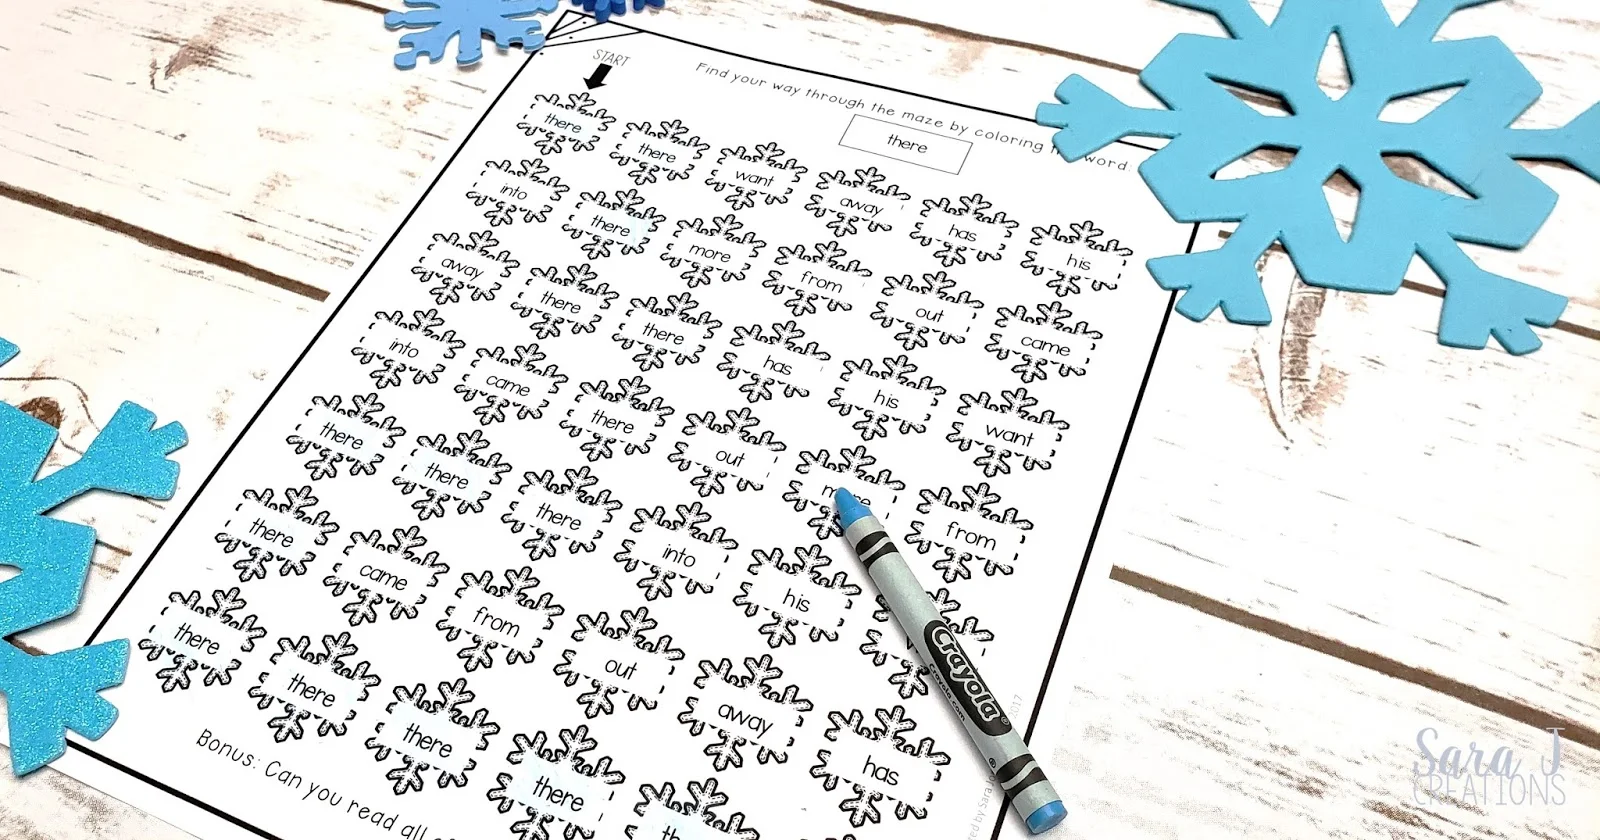 START
Find your way through the maze by coloring the word:
there
there there want away has his
into there more from out came
away there there has his want
into came there out more from
there there there into his
there came from out away has
there there there there
Bonus: Can you read all
Crayola
crayola.com
2017
Sara J
CREATIONS